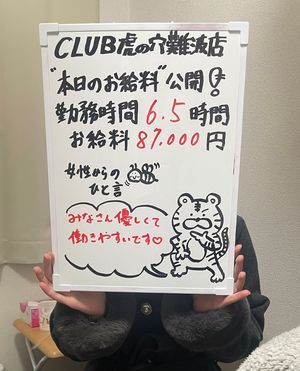 CLUB虎の穴難波店
"本日のお給料"公開!
勤務時間6.5時間
お給料87.000円
女性からの
ひと言
みなさん優しくて
働きやすいです♡